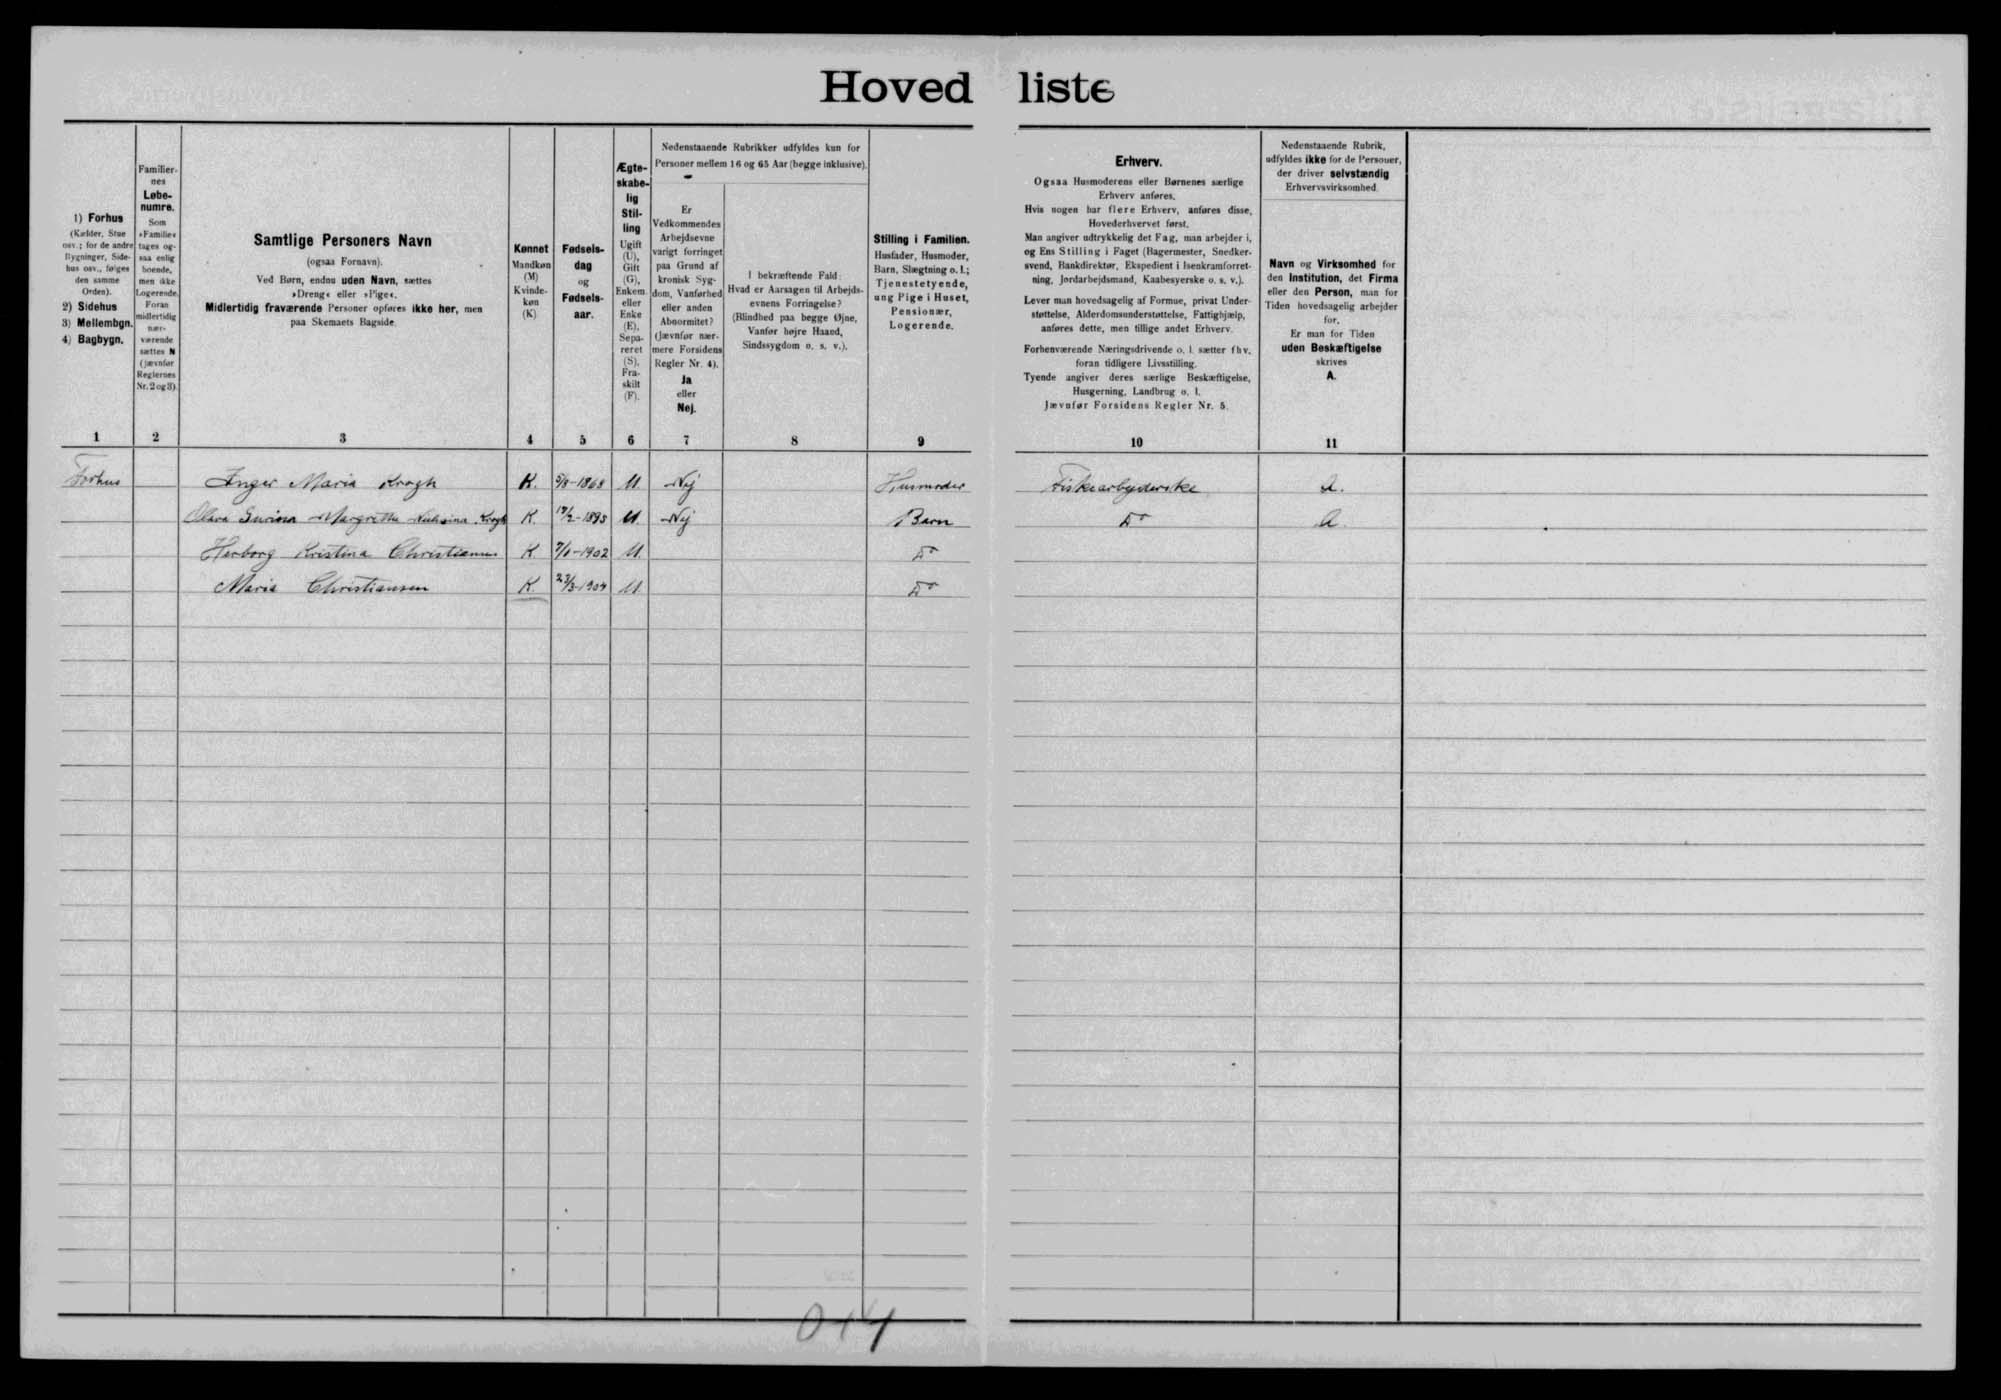 Hovedliste
1) Forhus
(Kælder, Stue
osv.; for de andre
Bygninger, Side-
hus osv., følges
den samme
Orden).
2) Sidehus
3) Mellembgn.
4) Bagbygn.
Familier-
nes
Løbe-
numre.
Som
»Familie«
tages og-
saa enlig
boende,
men ikke
Logerende.
Foran
midlertidig
nær-
værende
sættes N
(jævnfør
Reglernes
Nr. 2 og 3).
Samtlige Personers Navn
(ogsaa Fornavn).
Ved Børn, endnu uden Navn, sættes
»Dreng« eller »Pige«.
Midlertidig fraværende Personer opføres ikke her, men
paa Skemaets Bagside.
Kønnet
Mandkøn
(M)
Kvinde-
køn
(K)
Fødsels-
dag
og
Fødsels-
aar.
Ægte-
skabe-
lig
Stil-
ling
Ugift
(U),
Gift
(G),
Enkem.
eller
Enke
(E),
Sepa-
reret
(S),
Fra-
skilt
(F).
Nedenstaaende Rubrikker udfyldes kun for
Personer mellem 16 og 65 Aar (begge inklusive).
Er
Vedkommendes
Arbejdsevne
varigt forringet
paa Grund af
kronisk Syg-
dom, Vanførhed
eller anden
Abnormitet?
(Jævnfør nær-
mere Forsidens
Regler Nr. 4).
Ja
eller
Nej.
I bekræftende Fald:
Hvad er Aarsagen til Arbejds-
evnens Forringelse?
(Blindhed paa begge Øjne,
Vanfør højre Haand,
Sindssygdom o. s. v.).
Stilling i Familien.
Husfader, Husmoder,
Barn, Slægtning o. l.;
Tjenestetyende,
ung Pige i Huset,
Pensionær,
Logerende.
Erhverv.
Ogsaa Husmoderens eller Børnenes særlige
Erhverv anføres.
Hvis nogen har flere Erhverv, anføres disse,
Hovederhvervet først.
Man angiver udtrykkelig det Fag, man arbejder i,
og Ens Stilling i Faget (Bagermester, Snedker-
svend, Bankdirektør, Ekspedient i Isenkramforret-
ning, Jordarbejdsmand, Kaabesyerske o. s. v.).
Lever man hovedsagelig af Formue, privat Under-
støttelse, Alderdomsunderstøttelse, Fattighjælp,
anføres dette, men tillige andet Erhverv.
Forhenværende Næringsdrivende o. l. sætter fhv.
foran tidligere Livsstilling.
Tyende angiver deres særlige Beskæftigelse,
Husgerning, Landbrug o. l.
Jævnfør Forsidens Regler Nr. 5.
Nedenstaaende Rubrik,
udfyldes ikke for de Personer,
der driver selvstændig
Erhvervsvirksomhed.
Navn og Virksomhed for
den Institution, det Firma
eller den Person, man for
Tiden hovedsagelig arbejder
for.
Er man for Tiden
uden Beskæftigelse
skrives
A.
1 2 3 4 5 6 7 8 9 10 11
Forhus Inger Maria Krogh K. 5/8-1868 U. Nej Husmoder Fiskearbejderske A.
Margretha Krogh K. 1893 U. Nej Barn Do A.
Herborg Kristina Christiansen K 1902 U. Do
Maria Christiansen K. 23/3-1904 U. Do
0+4